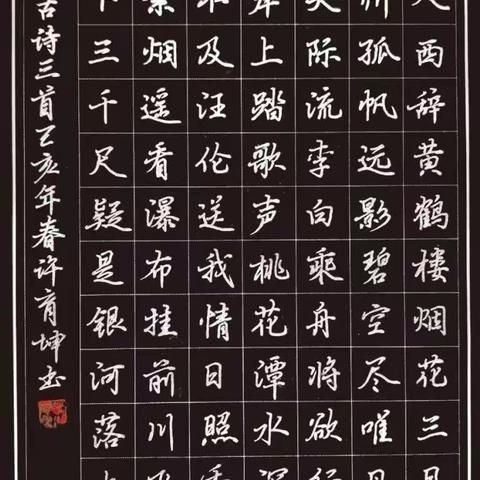 人西辞黄鹤楼烟花三月
州孤帆远影碧空尽唯见
天际流李白乘舟将欲行
岸上踏歌声桃花潭水深
不及汪伦送我情日照香
紫烟遥看瀑布挂前川飞
下三千尺疑是银河落九
古诗三首己亥年春许坤书